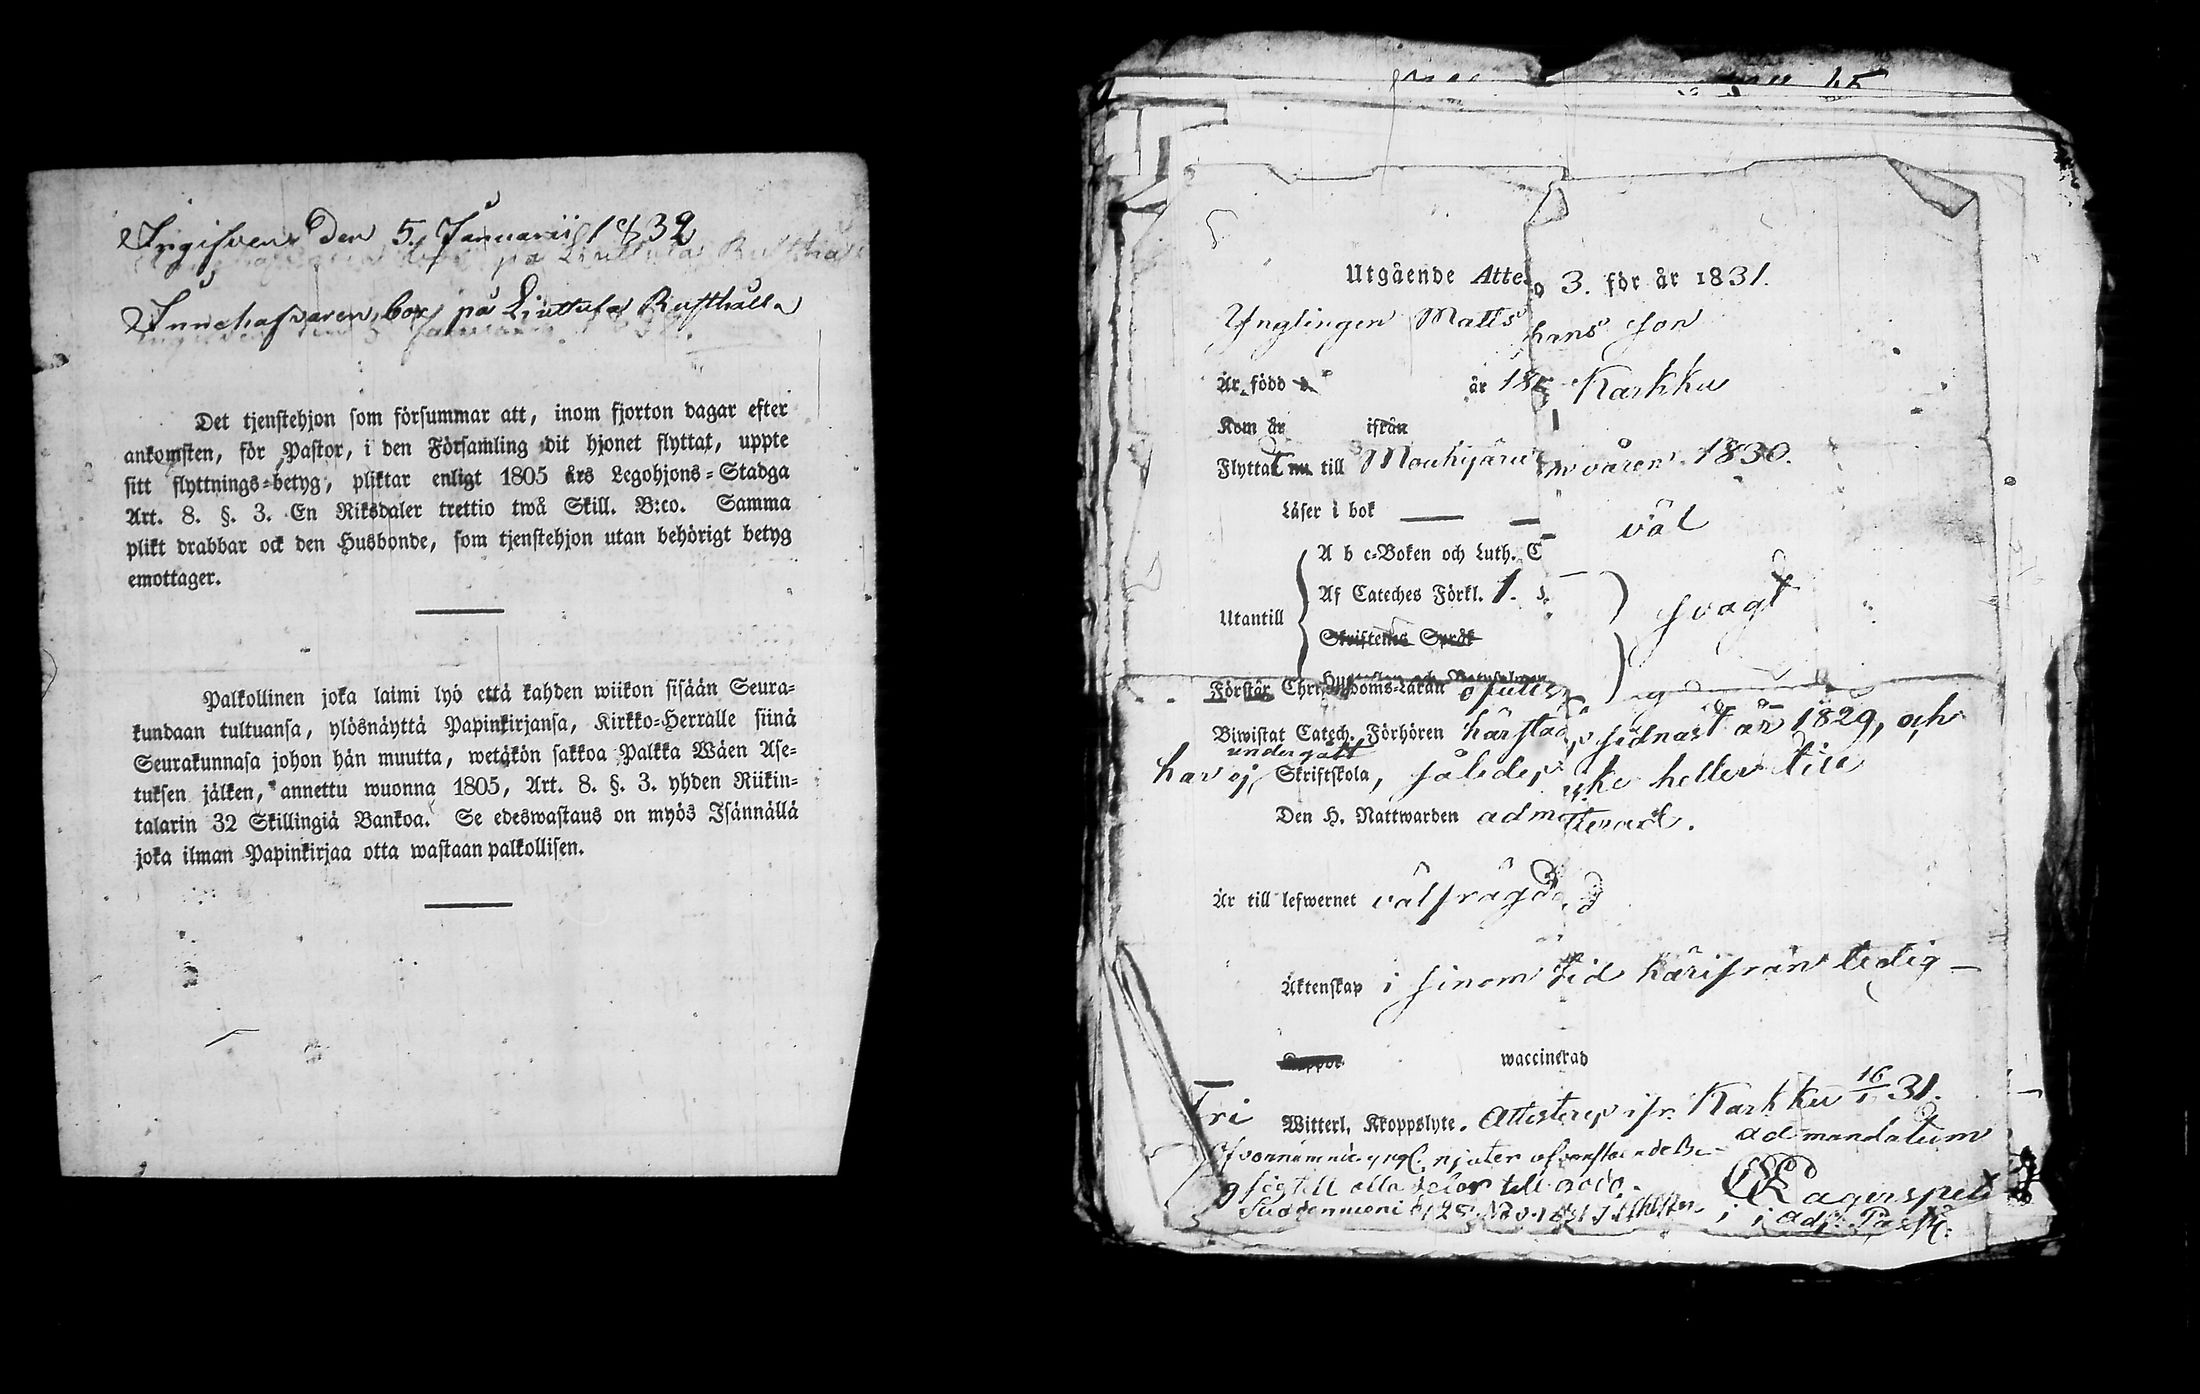 Ingifven Den 5. Januarii 1832
Innehafvaren bor på Liuttula Rusthåll
Det tjenstehjon som försummar att, inom fjorton dagar efter
ankomsten, för Pastor, i den Församling dit hjonet flyttat, uppte
sitt flyttnings-betyg, pliktar enligt 1805 års Legohjons-Stadga
Art. 8. §. 3. En Riksdaler trettio twå Skill. B:co. Samma
plikt drabbar ock den Husbonde, som tjenstehjon utan behörigt betyg
emottager.
Palkollinen joka laimi lyö että kahden wiikon sisään Seura-
kundaan tultuansa, ylösnäyttä Papinkirjansa, Kirkko-Herralle siinä
Seurakunnasa johon hän muutta, wetäkön sakkoa Palkka Wäen Ase-
tuksen jälken, annettu wuonna 1805, Art. 8. §. 3. yhden Riikin-
talarin 32 Skillingiä Bankoa. Se edeswastaus on myös Isännällä
joka ilman Papinkirjaa otta wastaan palkollisen.
Utgående Atte o 3. för år 1831.
Ynglingen Matts hans son
Är född år 18 Karkku
Kom år ifrån
Flyttat till Mouhijärvi våren 1830.
Läser i bok väl
A b c-Boken och Luth. C
Utantill Af Cateches Förkl. 1. svagt
Skriftenes Språk
Hustaflan och Botpsalmen
Förstår Christendoms-Läran
Biwistat Catech. Förhören härstädes sidnast år 1829, och
har ej undergått Skriftskola, således icke heller till
Den H. Nattwarden admitterad.
Är till lefwernet välfrägdad
Äktenskap i sinom tid härifrån ledig
Koppor waccinerad
Fri Witterl. Kkoppslyte. Attesteras ifr. Karkku 16/1 31.
ad mandatum
sig till alla delar till godo.
Suodenniemi d. 25 Nov. 1831
Lagerspetz
adj. Past.